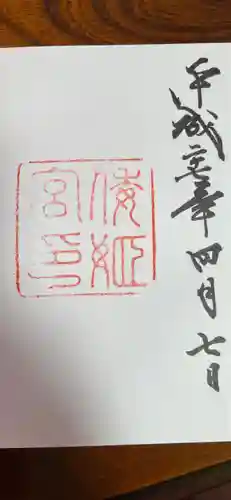 平成年四月七日
倭姫
宮印